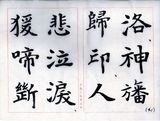 洛神旛
歸印人
悲泣淚
猨啼斷